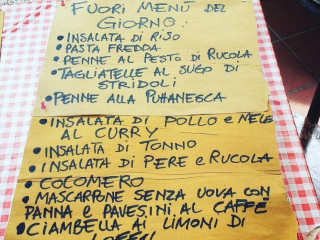 FUORI MENÙ DEL
GIORNO:
• INSALATA DI RISO
• PASTA FREDDA
• PENNE AL PESTO DI RUCOLA
• TAGLIATELLE AL SUGO DI
STRIDOLI
• PENNE ALLA PUTTANESCA
• INSALATA DI POLLO e MELE
AL CURRY
• INSALATA DI TONNO
• INSALATA DI PERE e RUCOLA
• COCOMERO
• MASCARPONE SENZA UOVA CON
PANNA e PAVESINI AL CAFFÈ
• CIAMBELLA AI LIMONI DI